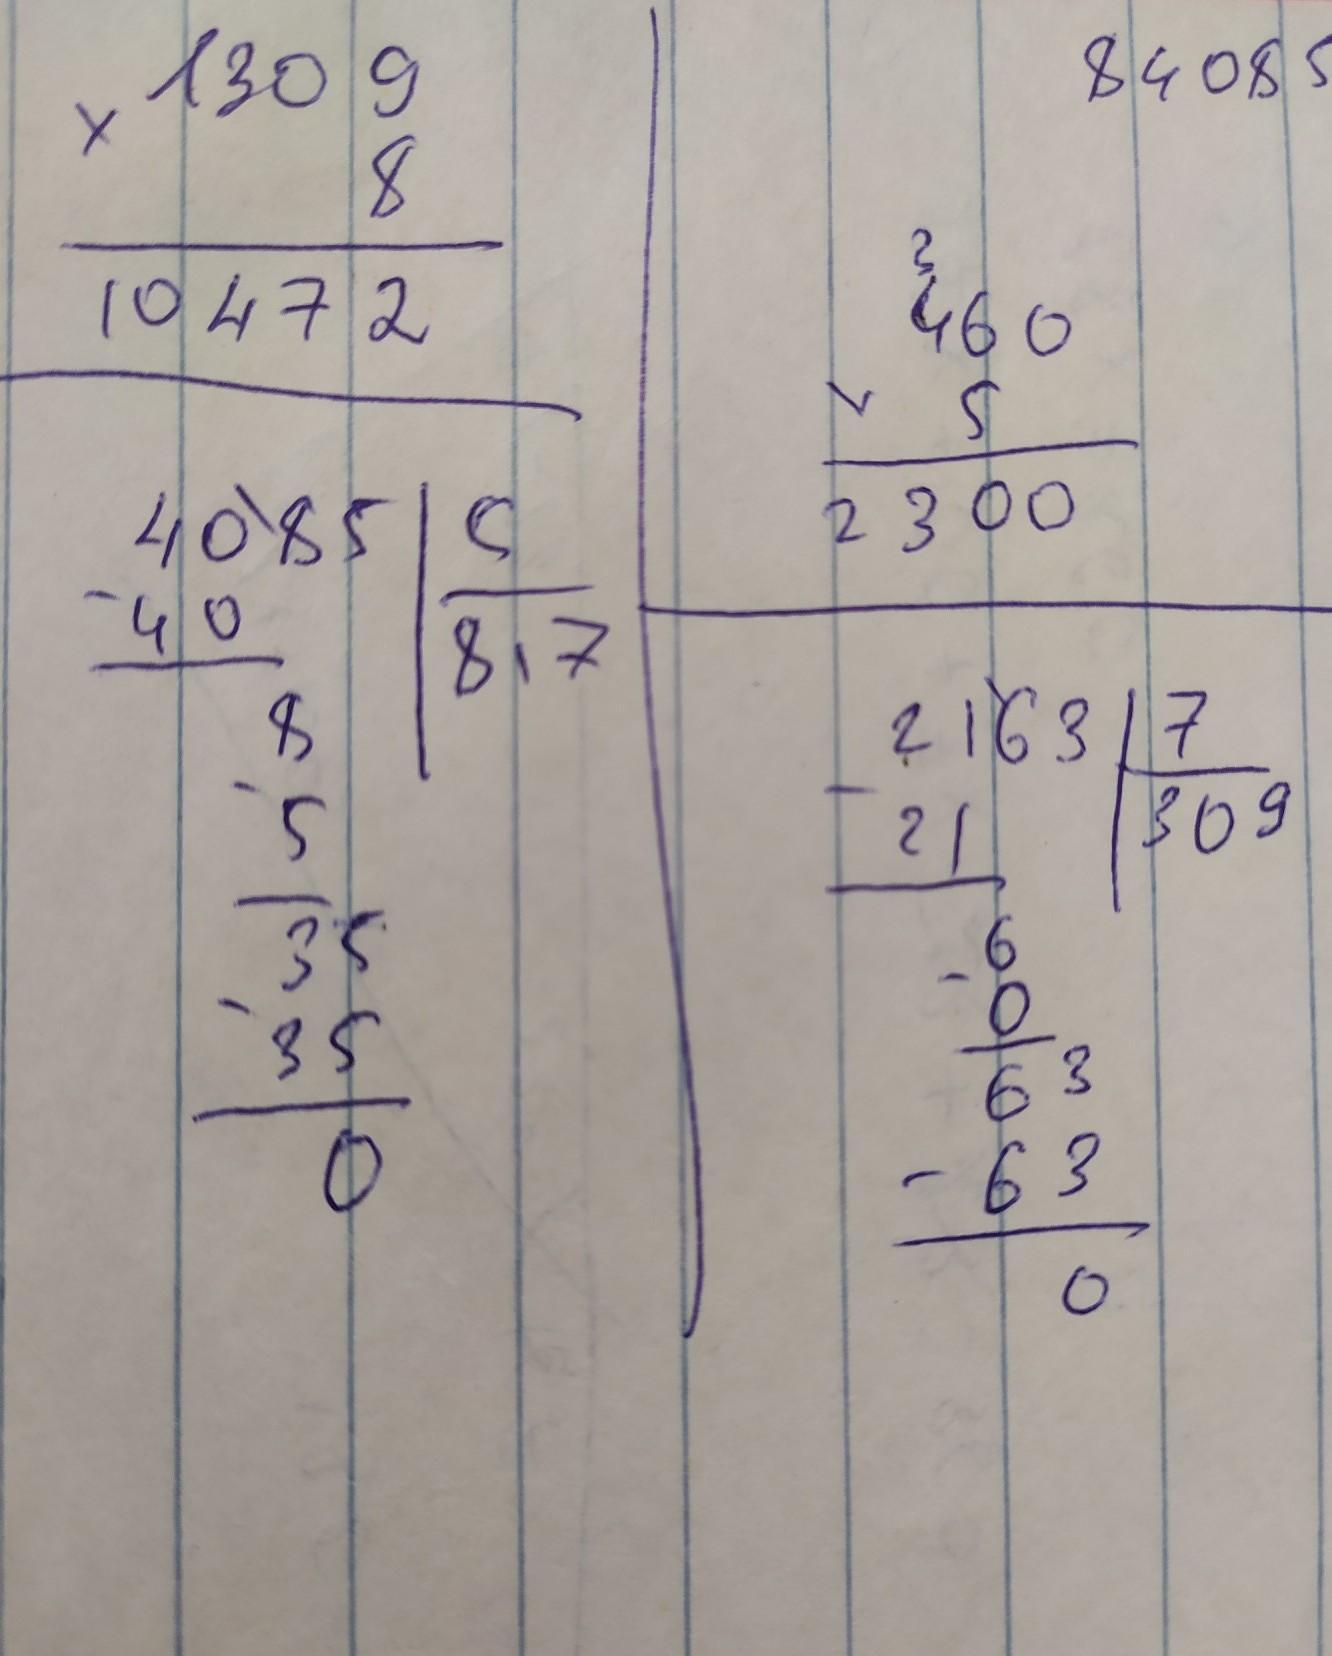 1309
× 8
10472
4085 5
-40 817
8
-5
35
-35
0
84085
3
460
× 5
2300
2163 7
-21 309
6
-0
63
-63
0